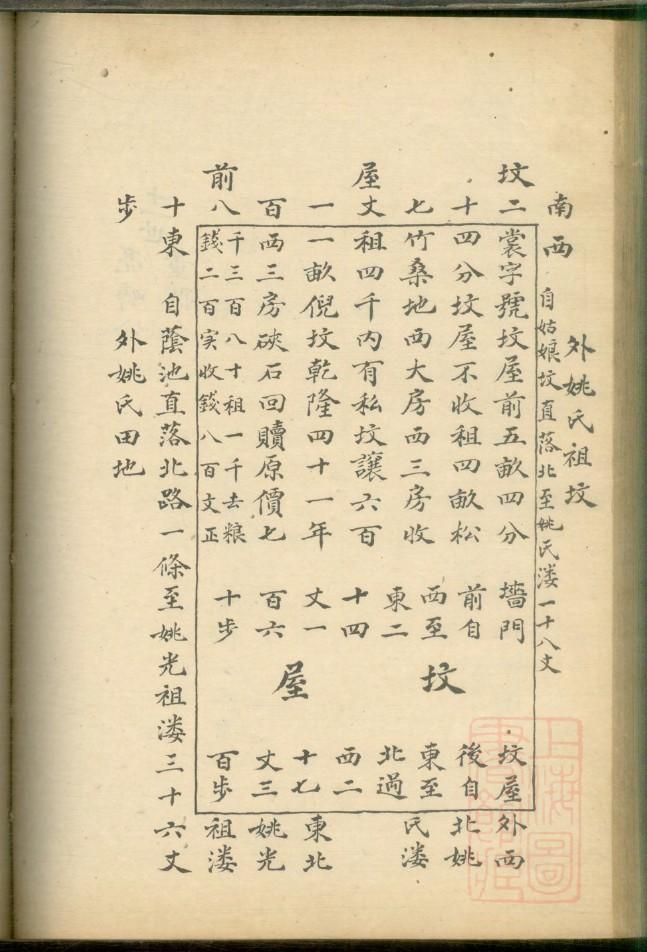 外姚氏祖坟
南西 自姑娘坟直落北至姚氏漊一十八丈
坟屋前
二十七丈一百八十步
裳字號坟屋前五畝四分
四分坟屋不收租四畝松
竹桑地西大房西三房收
租四千内有私坟讓六百
一畝倪坟乾隆四十一年
西三房硤石回贖原價七
千三百八十租一千去粮
錢二百实收錢八百文正
墻門
前自
西至
東二
十四
丈一
百六
十步
坟屋
坟屋
後自
東至
北過
西二
十七
丈三
百步
外西
北姚
氏漊
東北
姚光
祖漊
東 自蔭池直落北路一條至姚光祖漊三十六丈
外姚氏田地
上海圖書館藏